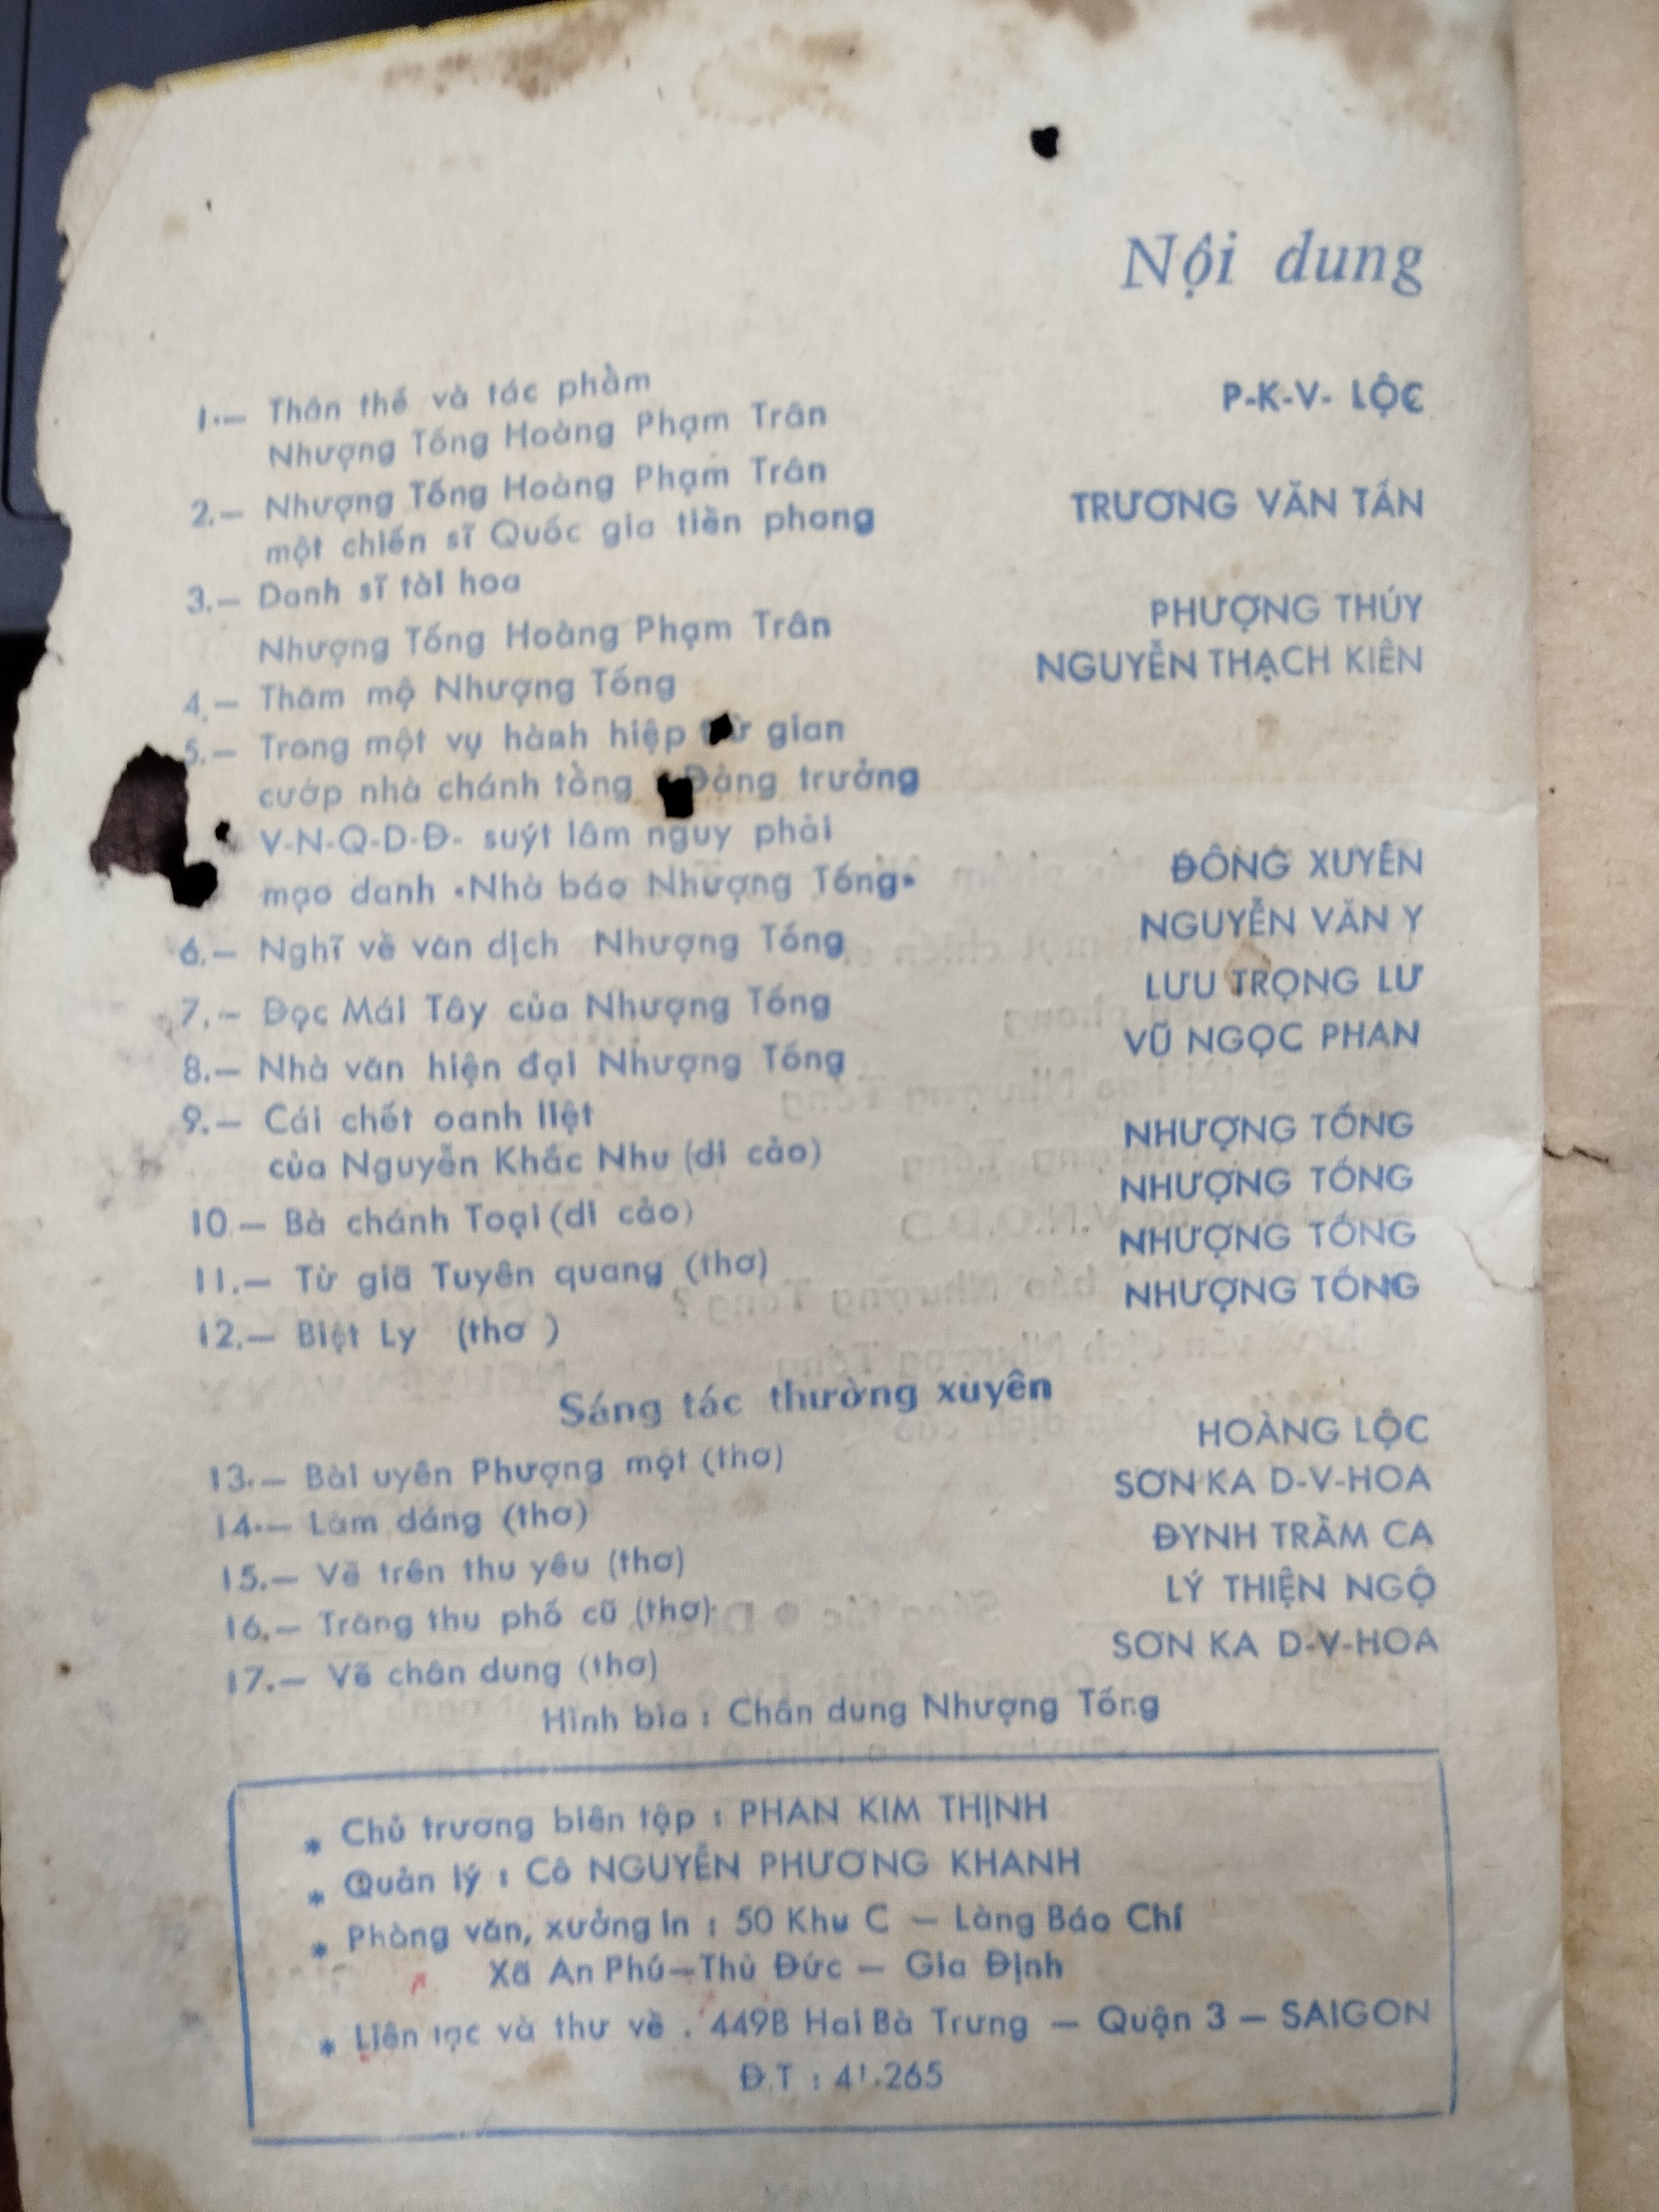 Nội dung
1.— Thân thế và tác phẩm
Nhượng Tống Hoàng Phạm Trân P-K-V- LỘC
2.— Nhượng Tống Hoàng Phạm Trân
một chiến sĩ Quốc gia tiền phong TRƯƠNG VĂN TẤN
3.— Danh sĩ tài hoa
Nhượng Tống Hoàng Phạm Trân PHƯỢNG THÚY
4.— Thăm mộ Nhượng Tống NGUYỄN THẠCH KIÊN
5.— Trong một vụ hành hiệp trừ gian
cướp nhà chánh tổng Đảng trưởng
V-N-Q-D-Đ- suýt lâm nguy phải
mạo danh «Nhà báo Nhượng Tống» ĐÔNG XUYÊN
6.— Nghĩ về văn dịch Nhượng Tống NGUYỄN VĂN Y
7.— Đọc Mái Tây của Nhượng Tống LƯU TRỌNG LƯ
8.— Nhà văn hiện đại Nhượng Tống VŨ NGỌC PHAN
9.— Cái chết oanh liệt
của Nguyễn Khắc Nhu (di cảo) NHƯỢNG TỐNG
10.— Bà chánh Toại (di cảo) NHƯỢNG TỐNG
11.— Từ giã Tuyên quang (thơ) NHƯỢNG TỐNG
12.— Biệt Ly (thơ ) NHƯỢNG TỐNG
Sáng tác thường xuyên
13.— Bài uyên Phượng một (thơ) HOÀNG LỘC
14.— Làm dáng (thơ) SƠN KA D-V-HOA
15.— Vẽ trên thu yêu (thơ) ĐYNH TRẦM CA
16.— Trăng thu phố cũ (thơ) LÝ THIỆN NGỘ
17.— Vẽ chân dung (thơ) SƠN KA D-V-HOA
Hình bìa : Chân dung Nhượng Tống
* Chủ trương biên tập : PHAN KIM THỊNH
* Quản lý : Cô NGUYỄN PHƯƠNG KHANH
* Phòng văn, xưởng in : 50 Khu C — Làng Báo Chí
Xã An Phú—Thủ Đức — Gia Định
* Liên lạc và thư về . 449B Hai Bà Trưng — Quận 3 — SAIGON
Đ.T : 41.265